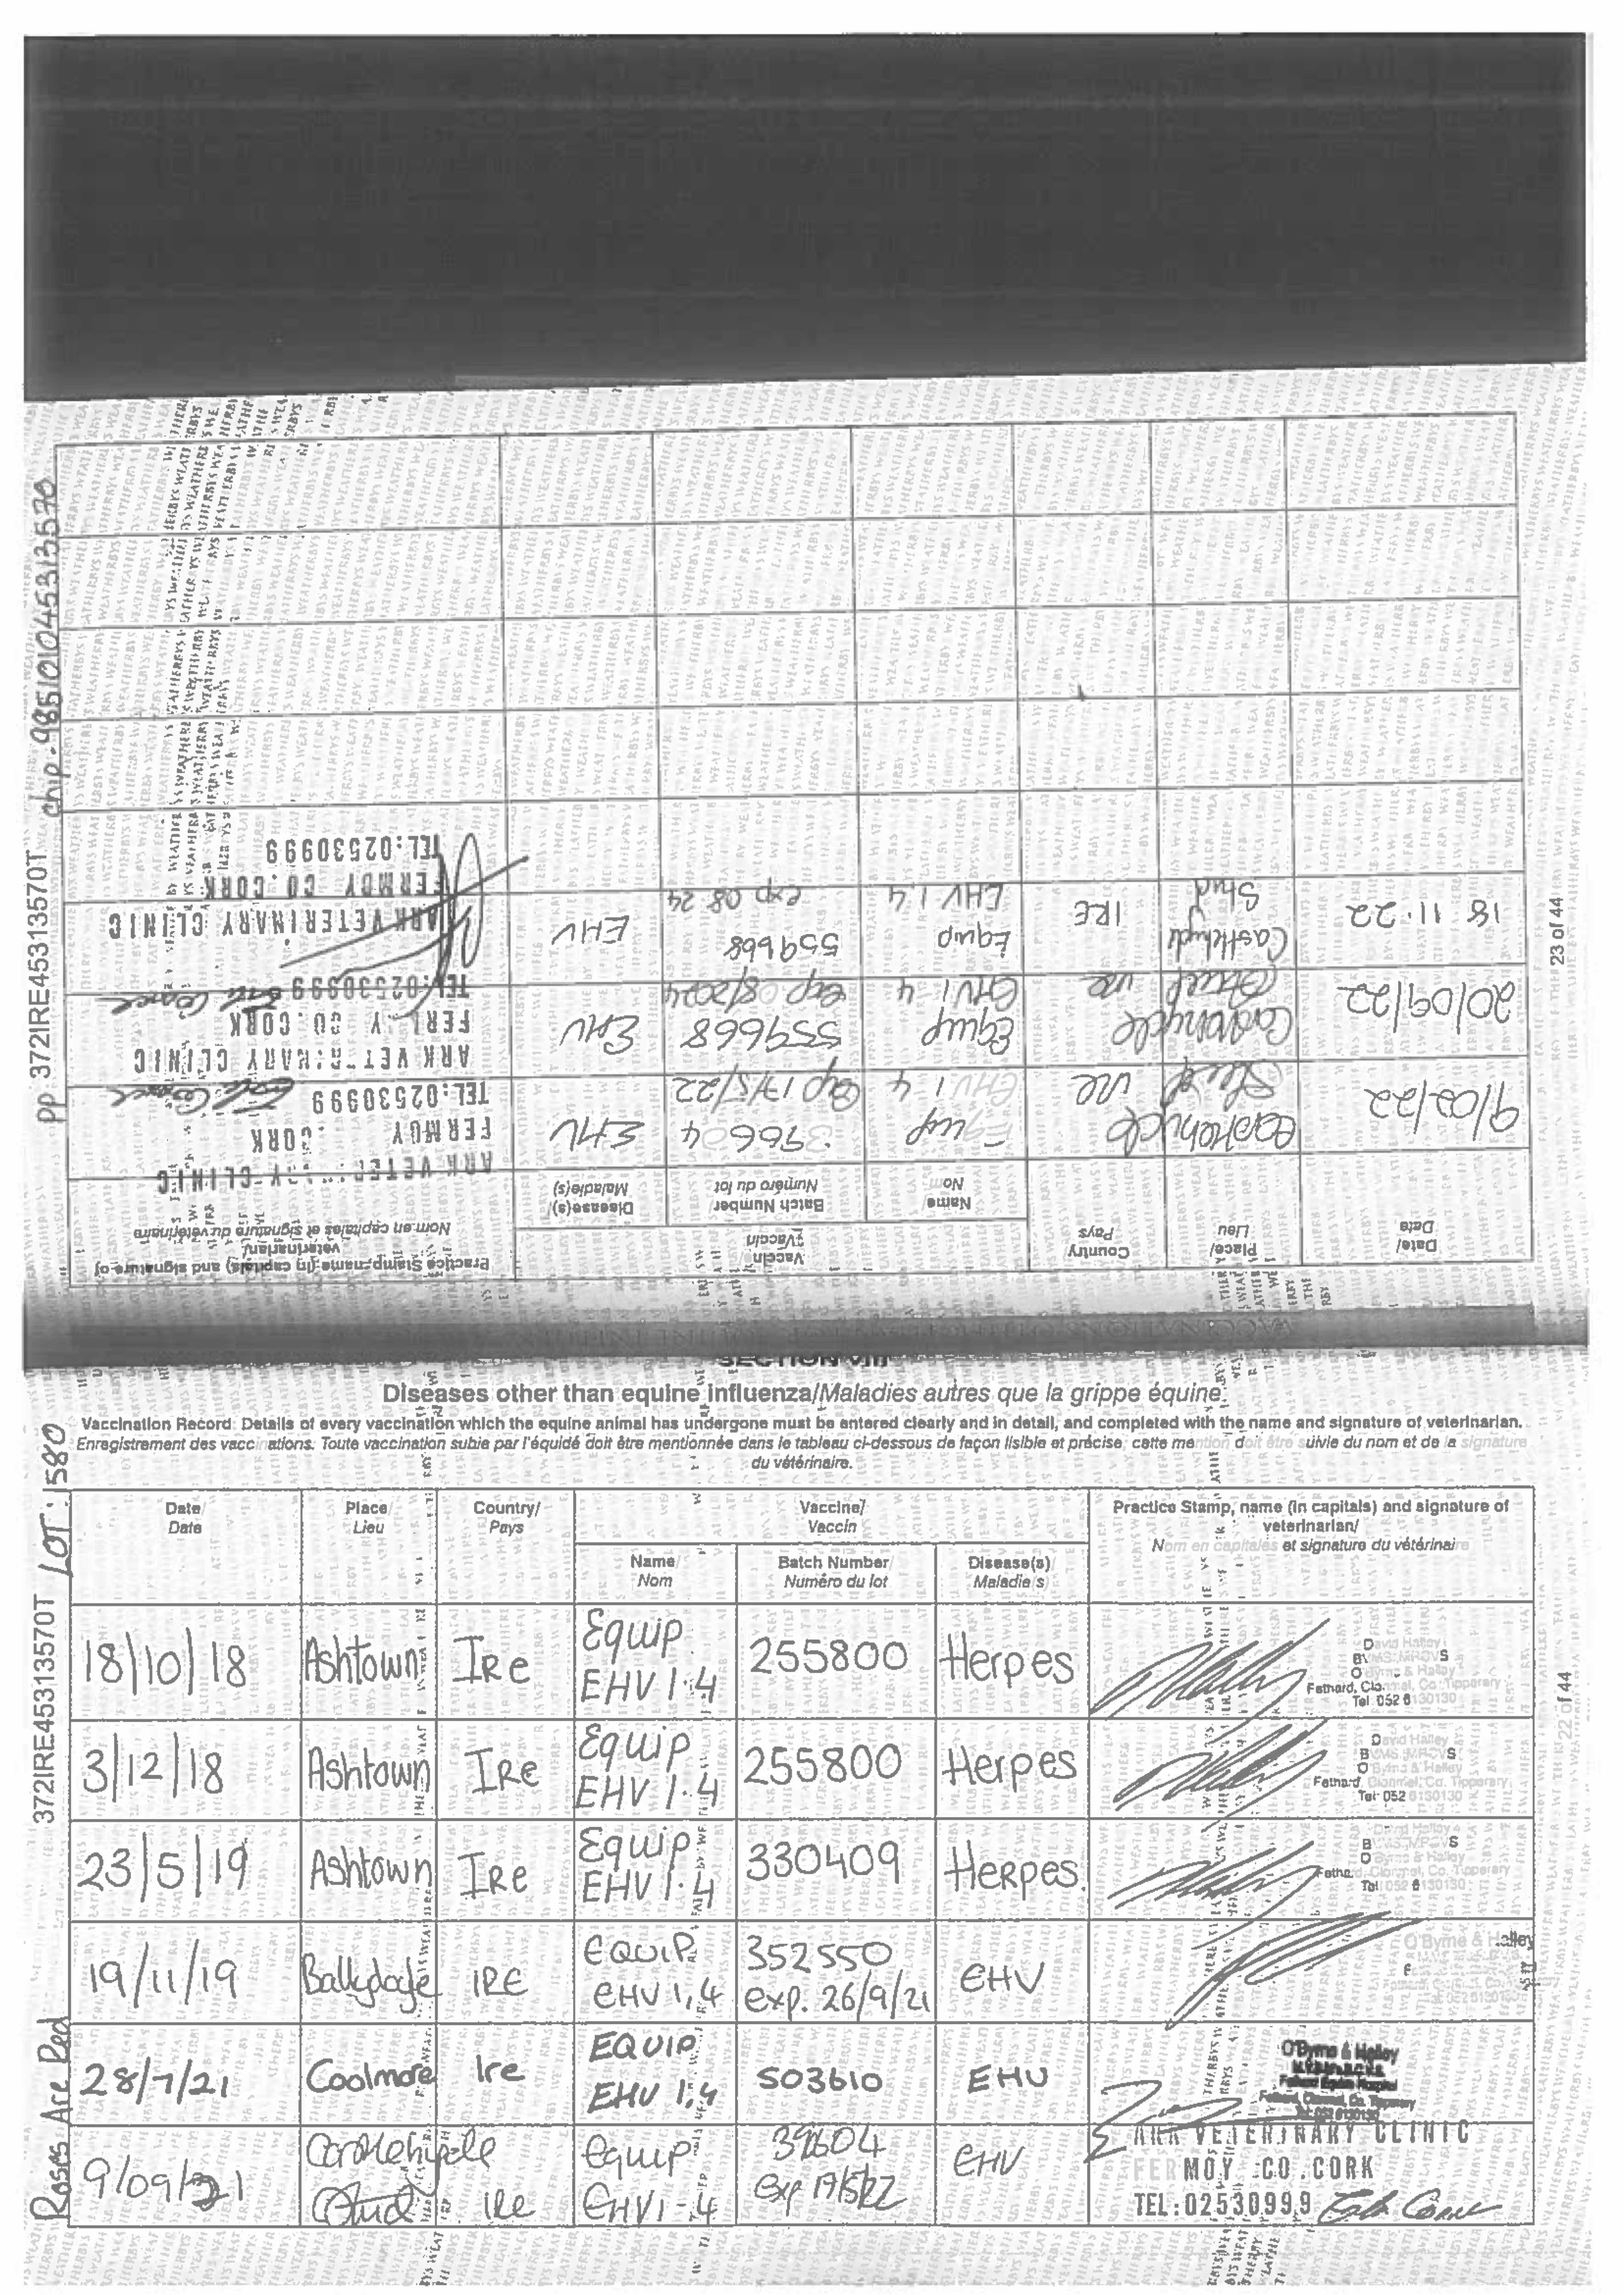 SECTION VIII
Diseases other than equine influenza/Maladies autres que la grippe équine
Vaccination Record: Details of every vaccination which the equine animal has undergone must be entered clearly and in detail, and completed with the name and signature of veterinarian.
Enregistrement des vaccinations. Toute vaccination subie par l'équidé doit être mentionnée dans le tableau ci-dessous de façon lisible et précise, cette mention doit être suivie du nom et de la signature
du vétérinaire.
372IRE45313570T LOT: 1580
Roses Are Red
Date/ Place/ Country/ Vaccine/ Practice Stamp, name (in capitals) and signature of
Date Lieu Pays Vaccin veterinarian/
Nom en capitales et signature du vétérinaire
Name/ Batch Number/ Disease(s)/
Nom Numéro du lot Maladie(s)
18/10/18 Ashtown IRe Equip EHV 1.4 255800 Herpes
David Halley
BVMS MRCVS
O'Byrne & Halley
Fethard, Clonmel, Co. Tipperary
Tel 052 6130130
3/12/18 Ashtown IRe Equip EHV 1.4 255800 Herpes
David Halley
BVMS MRCVS
O'Byrne & Halley
Fethard, Clonmel, Co. Tipperary
Tel 052 6130130
23/5/19 Ashtown IRe Equip EHV 1.4 330409 Herpes.
O'Byrne & Halley
Clonmel, Co. Tipperary
Tel 052 6130130
19/11/19 Ballydoyle IRE EQUIP EHV 1,4 352550 exp. 26/9/21 EHV
O'Byrne & Halley
28/7/21 Coolmore Ire EQUIP EHV 1.4 503610 EHV
O'Byrne & Halley
Fethard, Clonmel, Co. Tipperary
9/09/21 Stud Ire Equip EHV1-4 exp 17/5/22 EHV
ARK VETERINARY CLINIC
FERMOY CO.CORK
TEL:02530999
22 of 44
PP 372IRE45313570T chip - 985101045313570
Date/ Place/ Country/ Vaccin/ Practice Stamp name (in capitals) and signature of
Date Lieu Pays Vaccin veterinarian/
Nom en capitales et signature du vétérinaire
Name Batch Number Disease(s)
Nom Numéro du lot Maladie(s)
9/02/22 Stud Equip EHV 1 4 exp 17/5/22 EHV
ARK VETERINARY CLINIC
FERMOY CO.CORK
TEL:02530999
20/09/22 Stud Equip EHV 1 4 559668 exp 08/2024 EHV
ARK VETERINARY CLINIC
FERMOY CO.CORK
TEL:02530999
18.11.22 Castlehyde Stud IRE Equip EHV 1 4 559668 exp 08 24 EHV
ARK VETERINARY CLINIC
FERMOY CO.CORK
TEL:02530999
23 of 44